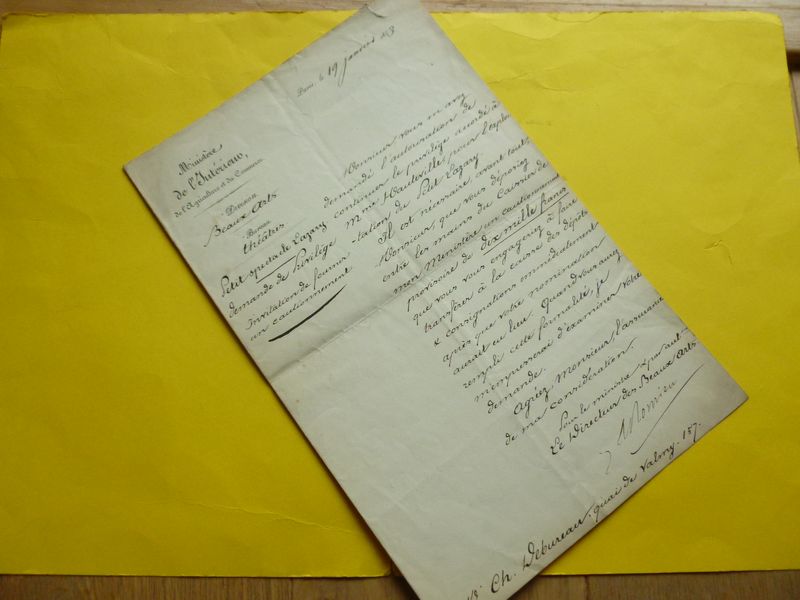 Paris, le 19 janvier 1853
Ministère
de l'Intérieur,
de l'Agriculture et du Commerce.
Division
Beaux Arts
Bureau
théâtres
Petit spectacle Lazary
demande de Privilège
Invitation de fournir
un cautionnement
Monsieur, vous m'avez
demandé l'autorisation de
continuer le privilège accordé à
Mme Hauteville, pour l'exploi-
-tation du Petit Lazary
Il est nécessaire, avant tout,
Monsieur, que vous déposiez
entre les mains du Caissier de
mon Ministère un cautionnement
provisoire de dix mille francs
que vous vous engagerez à faire
transférer à la caisse des dépôts
& consignations immédiatement
après que votre nomination
aurait eu lieu. Quand vous aurez
rempli cette formalité, je
m'empresserai d'examiner votre
demande.
Agréez Monsieur l'assurance
de ma considération.
Pour le ministre & par aut
Le Directeur des Beaux Arts
Romieu
Ch. Debureau, quai de Valmy. 187.